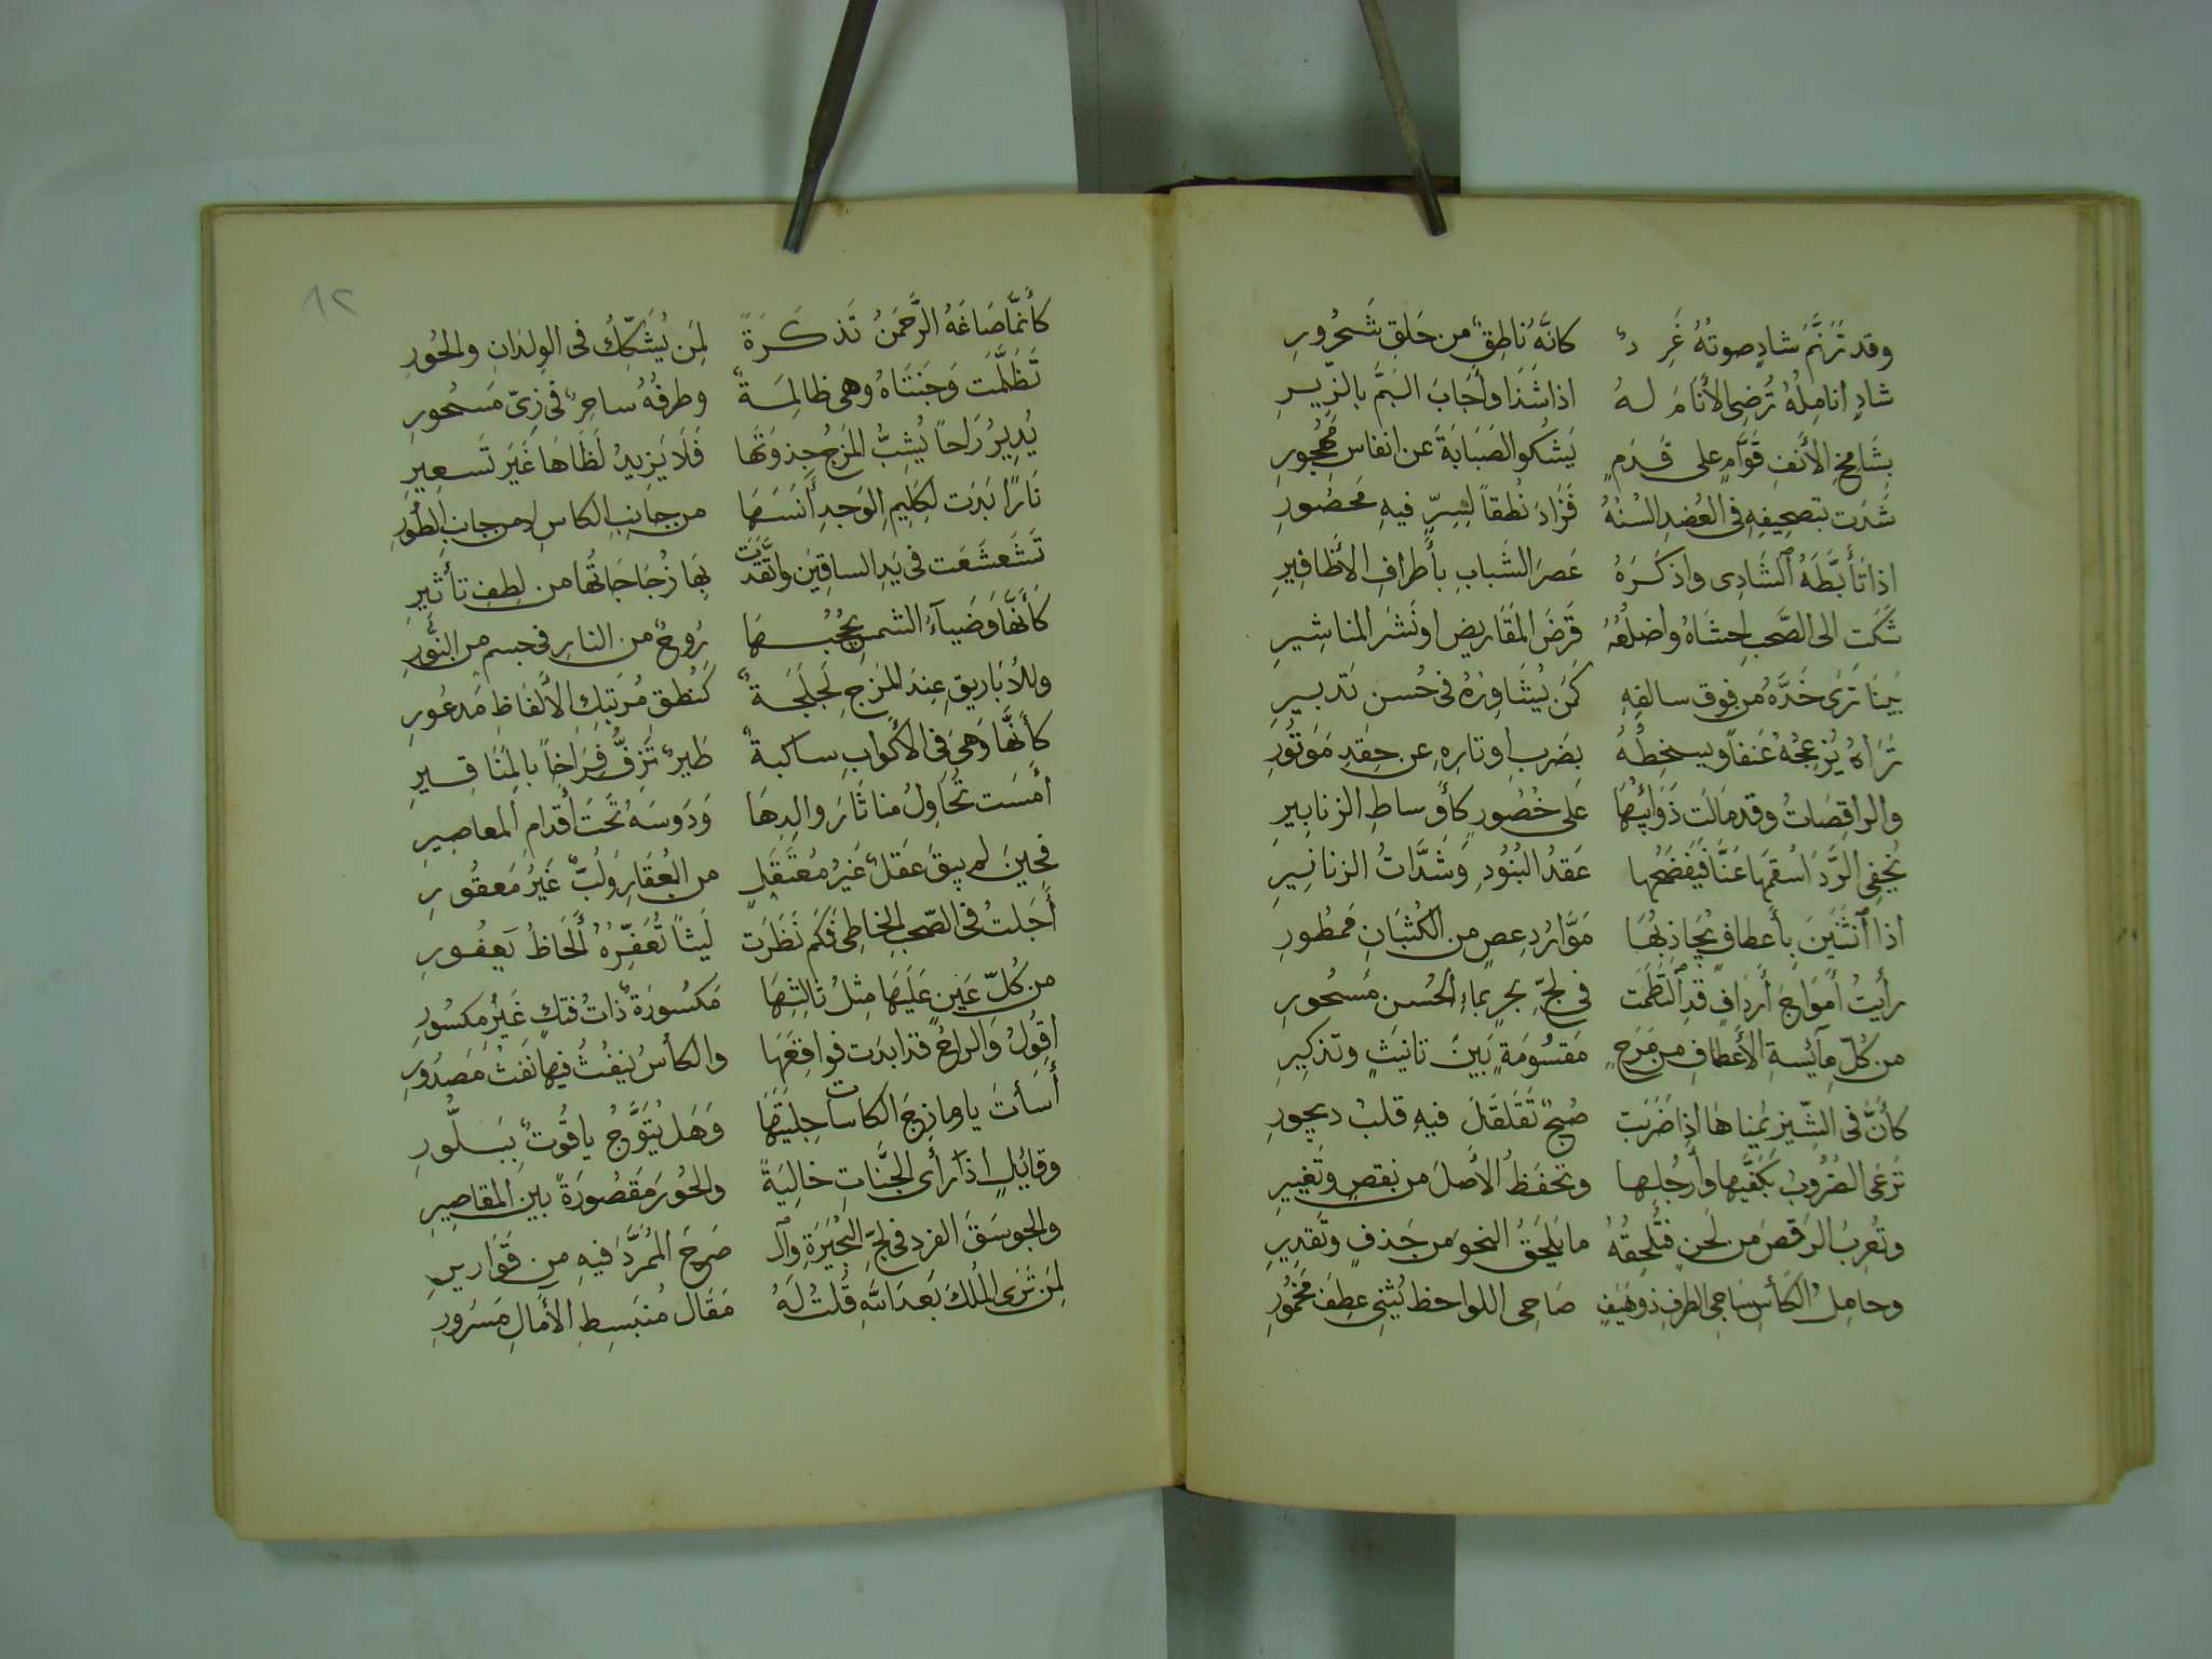 وقد تَرَنَّمَ شادٍ صوتُهُ غَرِدٌ كانَّهُ ناطِقٌ من حَلقِ شَحْرُورِ
شادٍ انامِلُهُ تُرضِى الأَنَامَ لهُ اذا شَدَا وأَجَابَ البَمَّ بالزّيرِ
بِشَامخِ الأَنفِ قَوَّامٍ على قَدَمٍ يَشكُو الصَبَابَةَ عن انفاسِ مَهجُورِ
شَدَت بتصحِيفِهِ فى العُضدِ السُنُهُ فَزَادَ نُطقاً لِسِرٍّ فيهِ مَحصُورِ
اذا تَأَبَّطَهُ ٱلشَادِى واذكَرَهُ عَصرَ الشَبابِ بأَطرافِ الأَظَافِيرِ
شَكَت الى الصَّحبِ احشَاهُ واضلُعُهُ قَرضَ المَقَاريضِ او نَشرَ المناشِيرِ
بَينَا تَرَى خَدَّهُ من فوق سالفِهِ كَمَن يُشَاوِرُهُ فى حُسنِ تَدبيرِ
تَرَاهُ يُزعِجُهُ عُنفاً ويسخِطُهُ بِضَربِ اوتارِهِ عن حِقدِ مَوتُورِ
والراقِصَاتُ وقد مَالَت ذَوَائِبُهَا عَلى خُصُورٍ كأَوساطِ الزنابِيرِ
يُخفِى الرَّدَا سُقمَهَا عَنَّا فَيَفضَحُهَا عَقدُ البُنُودِ وَشَدَّاتُ الزنانِيرِ
اذا ٱنثَنَينَ بأَعطافٍ يُجَاذِبُهَا مَوَّارُ دِعصٍ من الكُثبَانِ مَمطُورِ
رأيتُ أَموَاجَ أَردَافٍ قدِ التَطَمَت فى لُجِّ بحرٍ بماءِ الحُسنِ مَسجُورِ
من كُلِّ مائِسةِ الأَعطافِ من مَرَحٍ مَقسُومَةٍ بَينَ تانيثٍ وتذكيرِ
كأَنَّ فى الشِيزِ يُمنَاهَا اذا ضَرَبَت صُبحٌ تَقَلقَلَ فيهِ قلبُ ديجورِ
تَرعَى الضُرُوبَ بكَفَّيهَا وأَرجُلِهَا وتحفَظُ الأَصلَ من نقصٍ وتَغييرِ
وتُعرِبُ الرَقصَ من لَحنٍ فتُلحِقُهُ ما يَلحَقُ النحوَ من حَذفٍ وتَقدِيرِ
وحامِلُ الكَأسِ سَاجِى الطرفِ ذو هَيَفٍ صَاحِى اللواحظِ يُثنِى عِطفَ مَخمُورِ
٨٢
كأَنَّمَا صَاغَهُ الرَّحمَنُ تَذكَرَةً لِمَن يُشَكِّكُ فى الوِلدَانِ والحُورِ
تَظَلَّمَت وَجنَتَاهُ وهى ظالِمَةٌ وطرفُهُ ساحرٌ فى زِىّ مَسحُورِ
يُدِيرُ رَاحاً يُشِبُّ المَزجُ جِذوَتَهَا فَلَا يَزِيدُ لَظَاهَا غَيرَ تَسعِيرِ
نَارًا بَدَت لكَلِيمِ الوَجدِ أَنَسَهَا من جانبِ الكاسِ لا من جانبِ الطُورِ
تَشَعشَعَت فى يَدِ الساقِينَ واتَّقَدَت بِهَا زُجَاجَاتُها من لطفِ تأثيرِ
كَأَنَّهَا وَضِيَآءُ الشمسِ يَحجُبُهَا رُوحٌ من النارِ فى جسمٍ من النُّورِ
وللأَبَاريقِ عِندَ المَزجِ لَجلَجَةٌ كَنُطقِ مُرتَبِكِ الأَلفَاظِ مَذعُورِ
كأَنَّهَا وَهىَ فى الأَكوابِ ساكبةٌ طَيرٌ تَزِقُّ فِرَاخاً بالمَنَاقِيرِ
أَمسَت تُحَاوِلُ منا ثَارَ والِدِهَا وَدَوسَهُ تَحتَ أَقدَامِ المعاصِيرِ
فحِينَ لم يبقَ عَقلٌ غَيرُ مُعتَقَلٍ من العُقَارِ وَلُبٌّ غَيرُ مَعقُورِ
أَجَلتُ فى الصَّحبِ الحَاظِى فَكَم نَظَرَت لَيثاً تُعَفِّرُهُ أَلحَاظُ يَعفُورِ
من كُلِّ عَينٍ عَلَيهَا مِثلُ ثالثِهَا مَكسُورَةٌ ذاتُ فتكٍ غَيرُ مكسُورِ
اقُولُ وَالراحُ قد ابدَت فواقِعَهَا والكأسُ ينفُثُ فيها نَفثَ مَصدُورِ
أَسأتَ يا مازِجَ الكاسات حِليَتَهَا وَهَل يُتَوَّجُ ياقُوتٌ بِبَلُّورِ
وقائِلٍ اذ رأى الجَّناتِ خالِيَةً والحُورَ مَقصُورَةً بين المقاصِيرِ
والجوسَقَ الفردِ فى لُجِّ البُحَيرَةِ وٱل صَرحَ المُمَرَّدَ فيهِ من قَوَاريرِ
لِمَن تَرَى المُلكَ بَعدَ اللهِ قُلتُ لَهُ مَقَالَ مُنبَسِطِ الآمَالِ مَسرُورِ